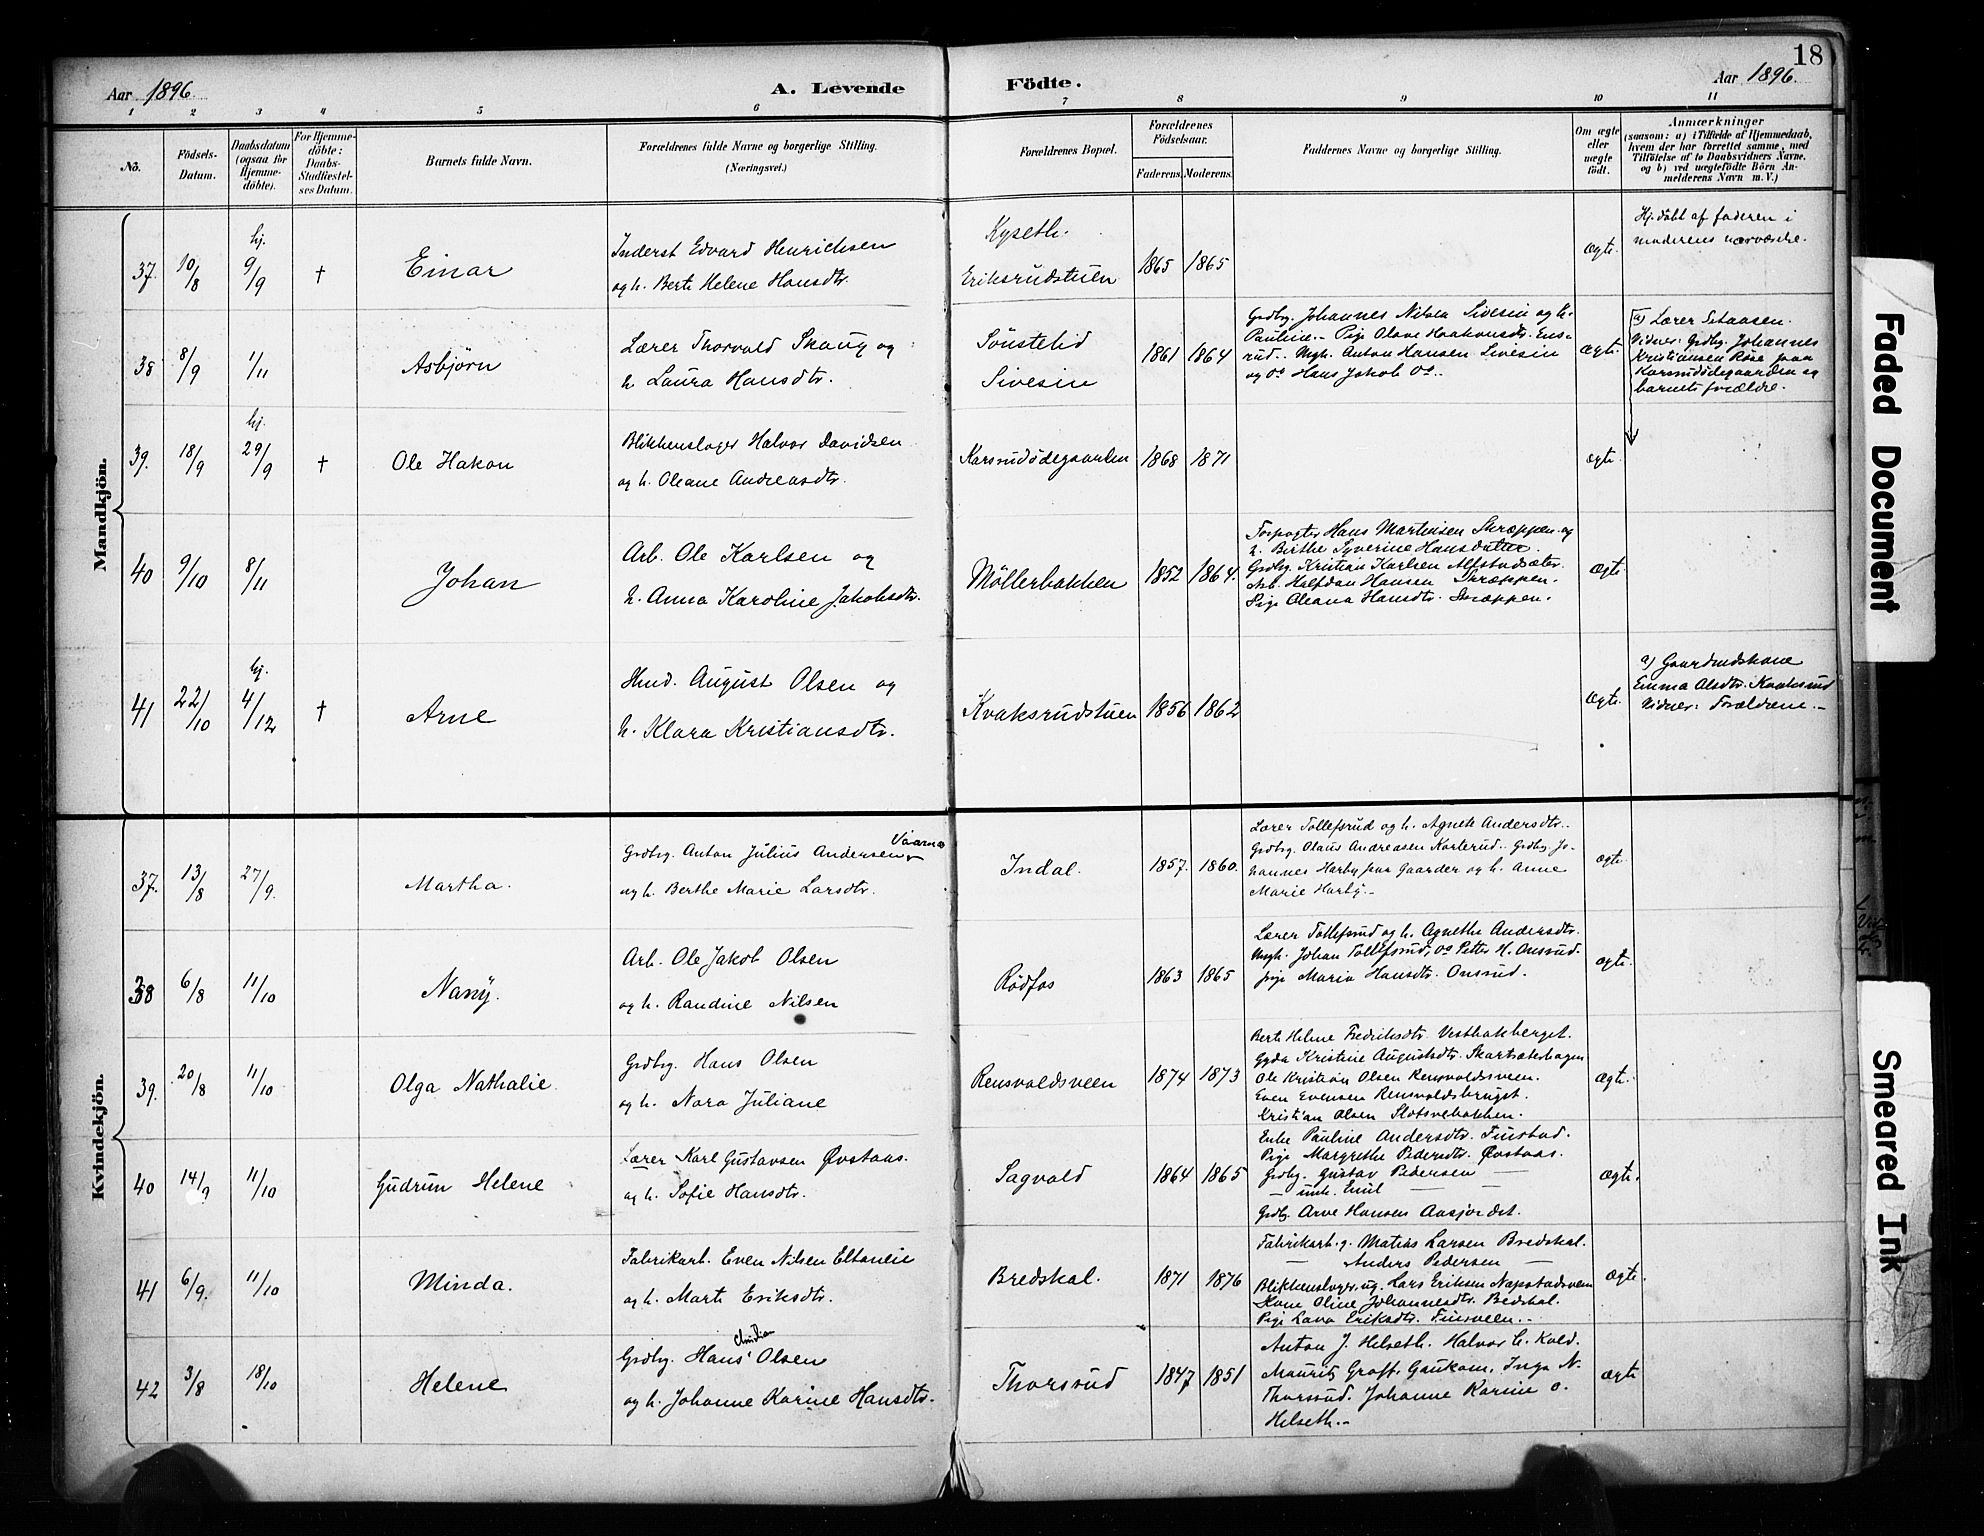 18
Aar 1896.
A. Levende
Födte.
Aar 1896.
1 2 3 4 5 6 7 8 9 10 11
No.
Födsels-Datum.
Daabsdatum (ogsaa for Hjemme-döbte).
For Hjemme-döbte: Daabs-Stadfæstel-ses Datum.
Barnets fulde Navn.
Forældrenes fulde Navne og borgerlige Stilling.
(Næringsvei.)
Forældrenes Bopæl.
Forældrenes Födselsaar.
Faderens. Moderens.
Faddernes Navne og borgerlige Stilling.
Om ægte eller uægte födt.
Anmærkninger
(saasom: a) i Tilfælde af Hjemmedaab, hvem der har forrettet samme, med Tilföielse af to Daabsvidners Navne, og b) ved uægtefödte Börn An-melderens Navn m. V.)
Mandkjön.
37. 10/8 hj. 9/9 † Einar
Inderst Edvard Henrichsen
og h. Berte Helene Hansdtr.
Kyseth.
Eriksrudstuen
1865 1865
ægte.
Hj. döbt af faderen i
moderens nærværelse.
38 8/9 1/11 Asbjörn
Lærer Thorvald Skaug og
h. Laura Hansdtr.
Sönstelid
Sivesin
1861 1864
Grdbg. Johannes Nilsen Sivesin og h.
Pauline. Pige Olave Haakonsdtr. Ens-
rud. Ungk. Anton Hansen Sivesin
og do Hans Jakob do.
ægte.
a) Lærer Setaasen.
Vidner: Grdbg. Johannes
Kristiansen Röse paa
Karsrudödegaarden og
barnets forældre.
39. 18/9 hj. 29/9 † Ole Hakon
Blikkenslager Halvor Davidsen
og h. Oleane Andreasdtr.
Karsrudödegaarden
1868 1871
ægte.
40 9/10 8/11 Johan
Arb. Ole Karlsen og
h. Anna Karoline Jakobsdtr.
Möllerbakken
1852 1864.
Forpagter Hans Martinsen Skræppen og
h. Birthe Syverine Hansdatter.
Grdbg. Kristian Karlsen Alfstadsæter.
Arb. Halfdan Hansen Skræppen.
Pige Oleana Hansdtr. Skræppen.
ægte.
41 22/10 hj. 4/12 † Arne
Hmd. August Olsen og
h. Klara Kristiansdtr.
Kvaksrudstuen
1856 1862
ægte.
a) Gaardmdskone
Emma Olsdtr. Kvaksrud
Vidner: Forældrene.
Kvindekjön.
37. 13/8 27/9. Martha.
Grdbrg. Anton Julius Andersen Vaarna
og h. Berthe Marie Larsdtr.
Indal.
1857. 1860.
Lærer Tollefsrud og h. Agnete Andersdtr.
Grdbg. Olaus Andreasen Karlerud. Grdbg. Jo-
hannes Harby paa Gaarder og h. Anne
Marie Harby.
ægte.
38 6/8 11/10 Nany.
Arb. Ole Jakob Olsen
og h. Randine Nilsen
Rödfos
1863 1865
Lærer Tollefsrud og h. Agnethe Andersdtr.
Ungk. Johan Tollefsrud, do Petter H. Onsrud.
pige Maria Hansdtr. Onsrud.
ægte.
39. 20/8 11/10 Olga Nathalie
Grdbrg. Hans Olsen
og h. Nora Juliane
Rensvoldsveen
1874 1873
Berte Helene Fredriksdtr. Vestbakberget.
Gyda Kristine Augustsdtr. Skartsæterhagen
Ole Kristian Olsen Rensvoldsveen.
Even Evensen Rensvoldsbruget.
Kristian Olsen Slotsvebakken.
ægte.
40 14/9 11/10 Gudrun Helene
Lærer Karl Gustavsen Øvstaas.
og h. Sofie Hansdtr.
Sagvold
1864 1865
Enke Pauline Andersdtr. Finstad.
Pige Margrethe Pedersdtr. Øvstaas.
Grdbg. Gustav Pedersen —
— unk. Emil — —
Grdbg. Arve Hansen Aasjordet.
ægte.
41 6/9. 11/10 Minda.
Fabrikarb. Even Nilsen Eltonlie
og h. Marte Eriksdtr.
Bredskal.
1871 1876
Fabrikarb. g. Matias Larsen Bredskal.
— Anders Pedersen —
Blikkenslager ug. Lars Eriksen Næpstadsveen
Kone Oline Johannesdtr. Bredskal.
Pige Lava Eriksdtr. Finsveen.
ægte.
42 3/8 18/10 Helene
Grdbg. Hans Christian Olsen
og h. Johanne Karine Hansdtr.
Thorsrud
1847 1851
Anton J. Helseth. Halvor C. Kold.
Mauritz Groff. Gaukom. Inga N.
Thorsrud. Johanne Karine O.
Helseth.
ægte
Faded Document
Smeared Ink